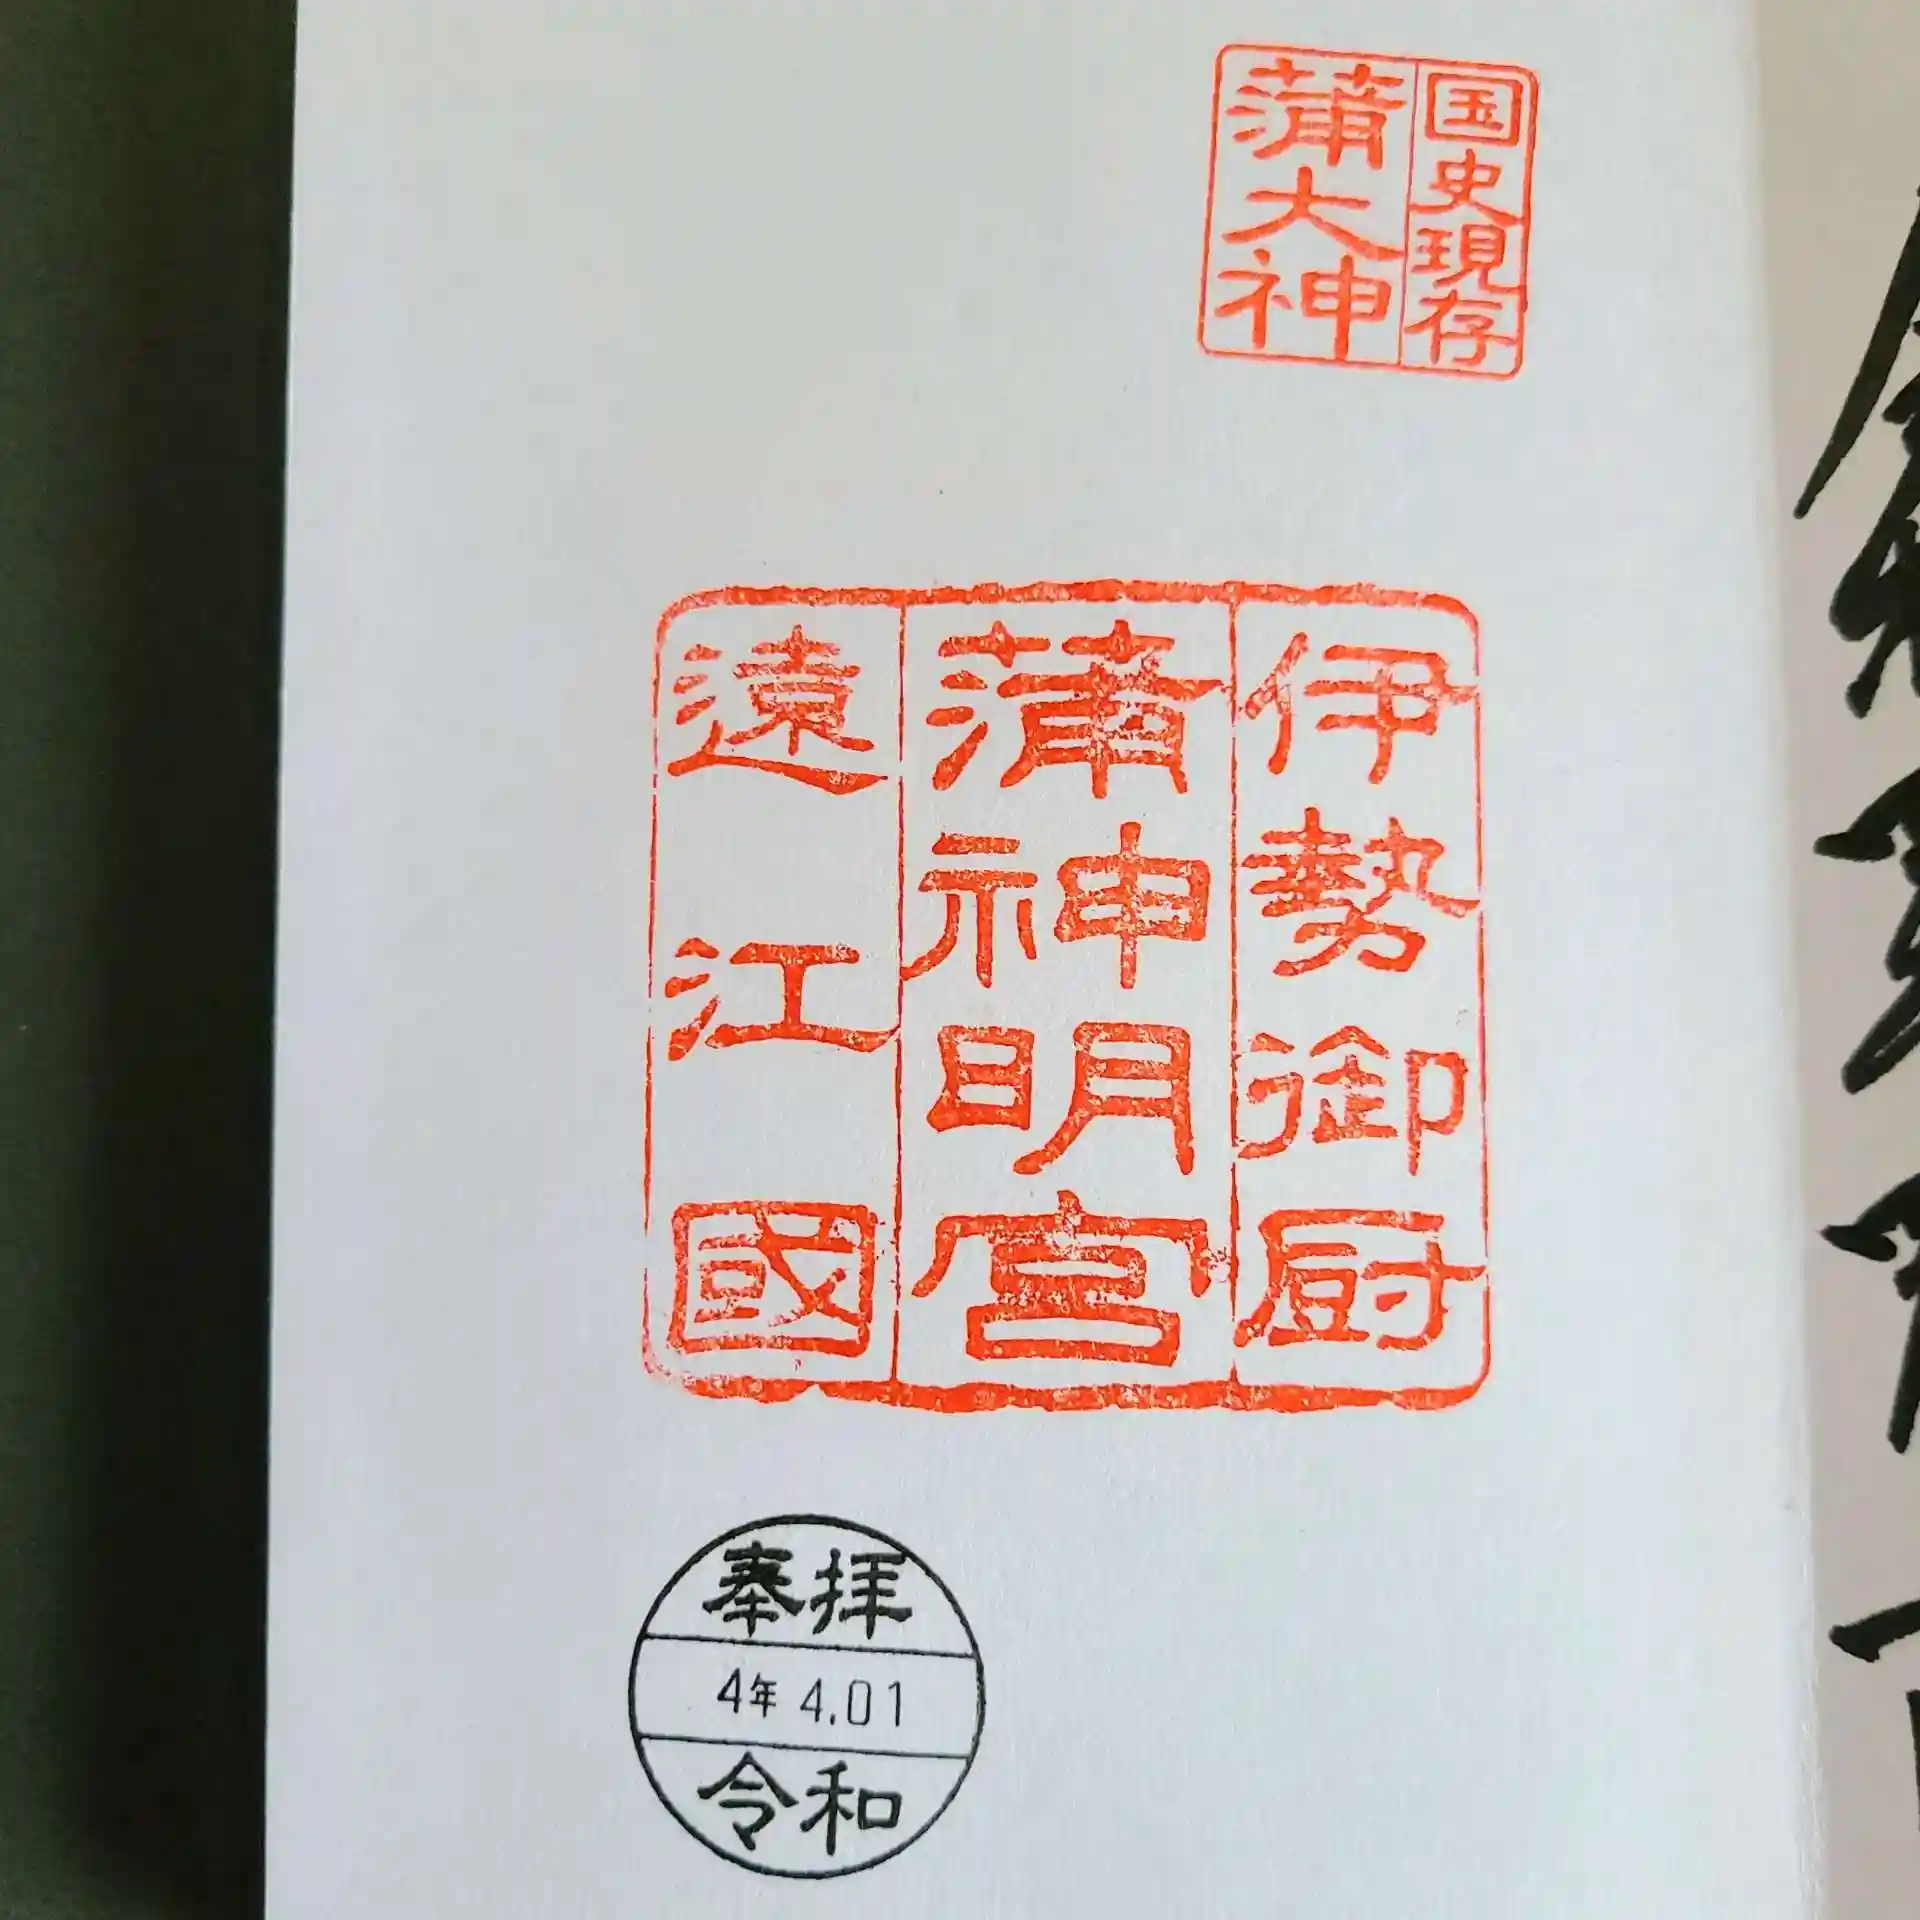 国史現存
蒲大神
伊勢御厨
蒲神明宮
遠江國
奉拝
4年 4.01
令和